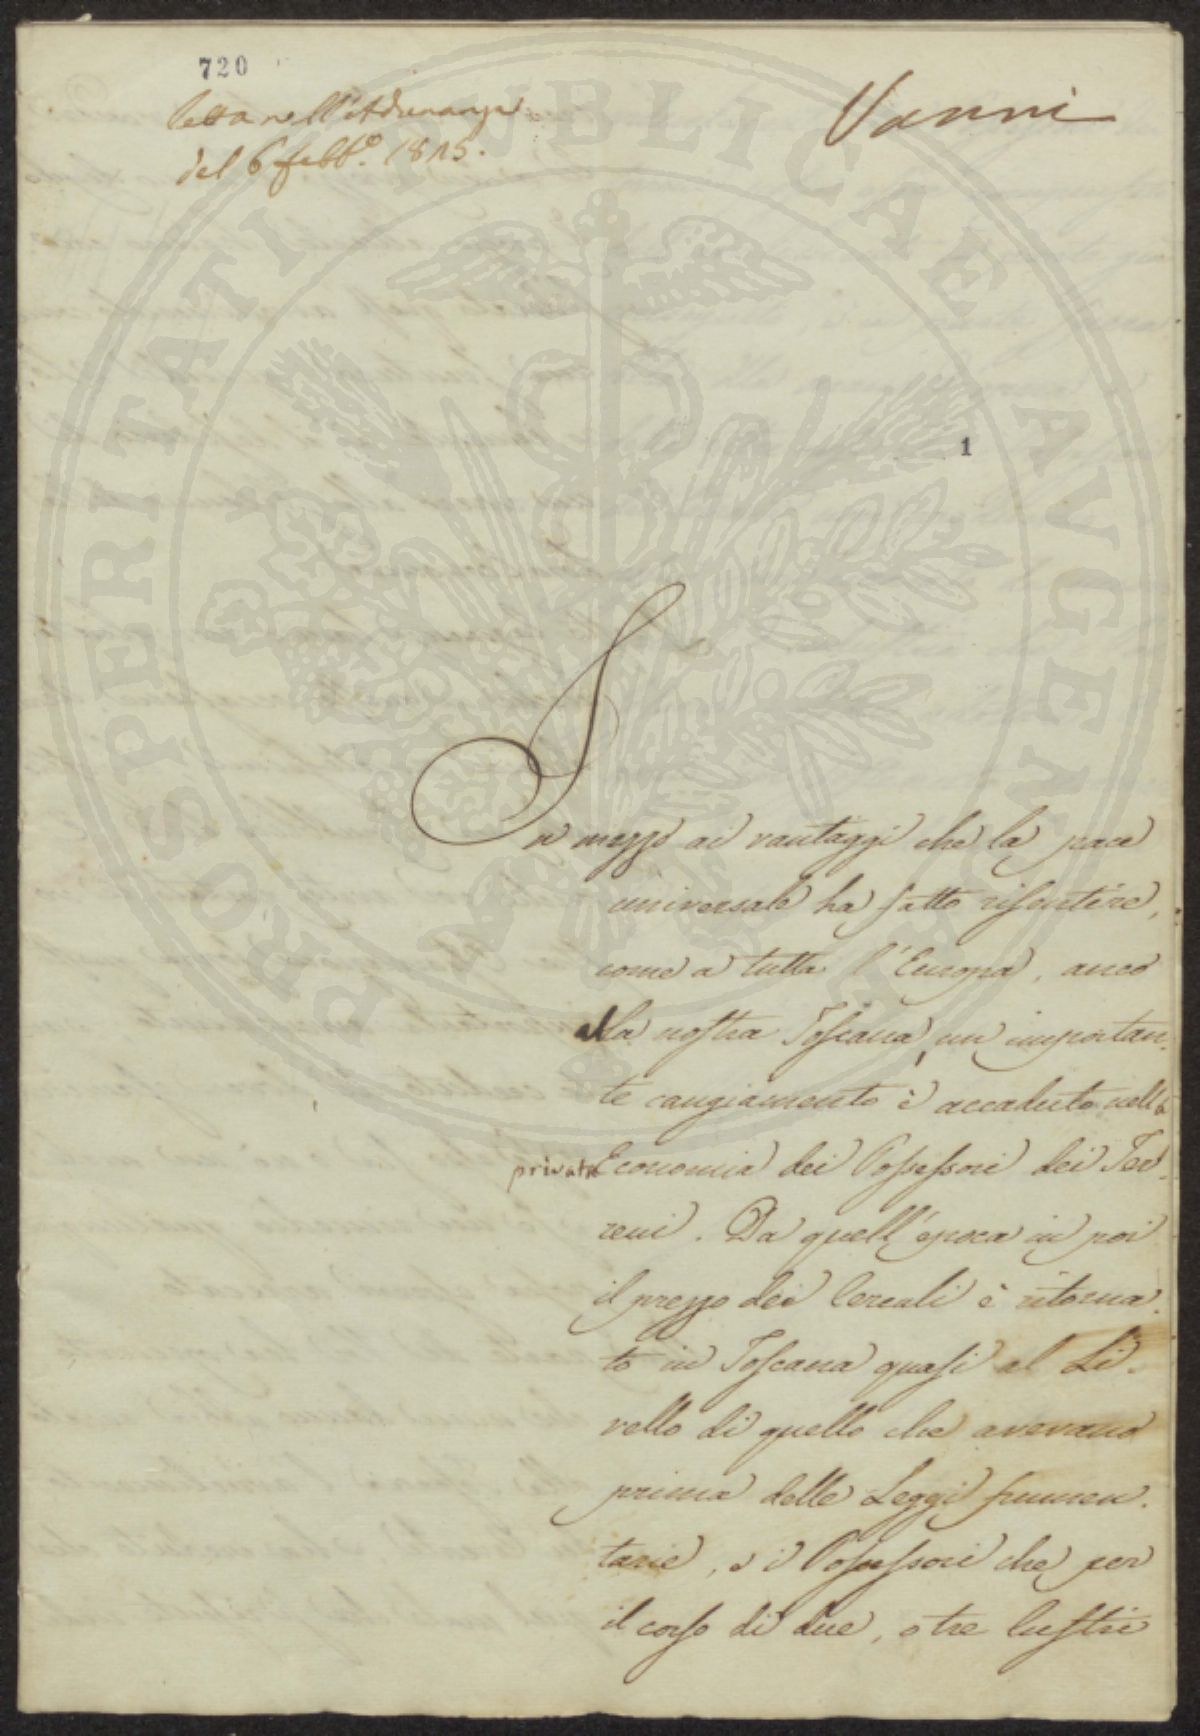 720
Letta nell'Adunanza
del 6 febb.º 1815.
Vanni
1
In mezzo ai vantaggi che la pace
universale ha fatto risentire,
come a tutta l'Europa, anco
alla nostra Toscana, un importan-
te cangiamento è accaduto nella
privata Economia dei Possessori dei Ter-
reni. Da quell'epoca in poi
il prezzo dei Cereali è ritorna-
to in Toscana quasi al Li-
vello di quello che avevano
prima delle Leggi frumen-
tarie, e i Possessori che per
il corso di due, o tre lustri
PROSPERITATI PVBLICAE AVGENDAE